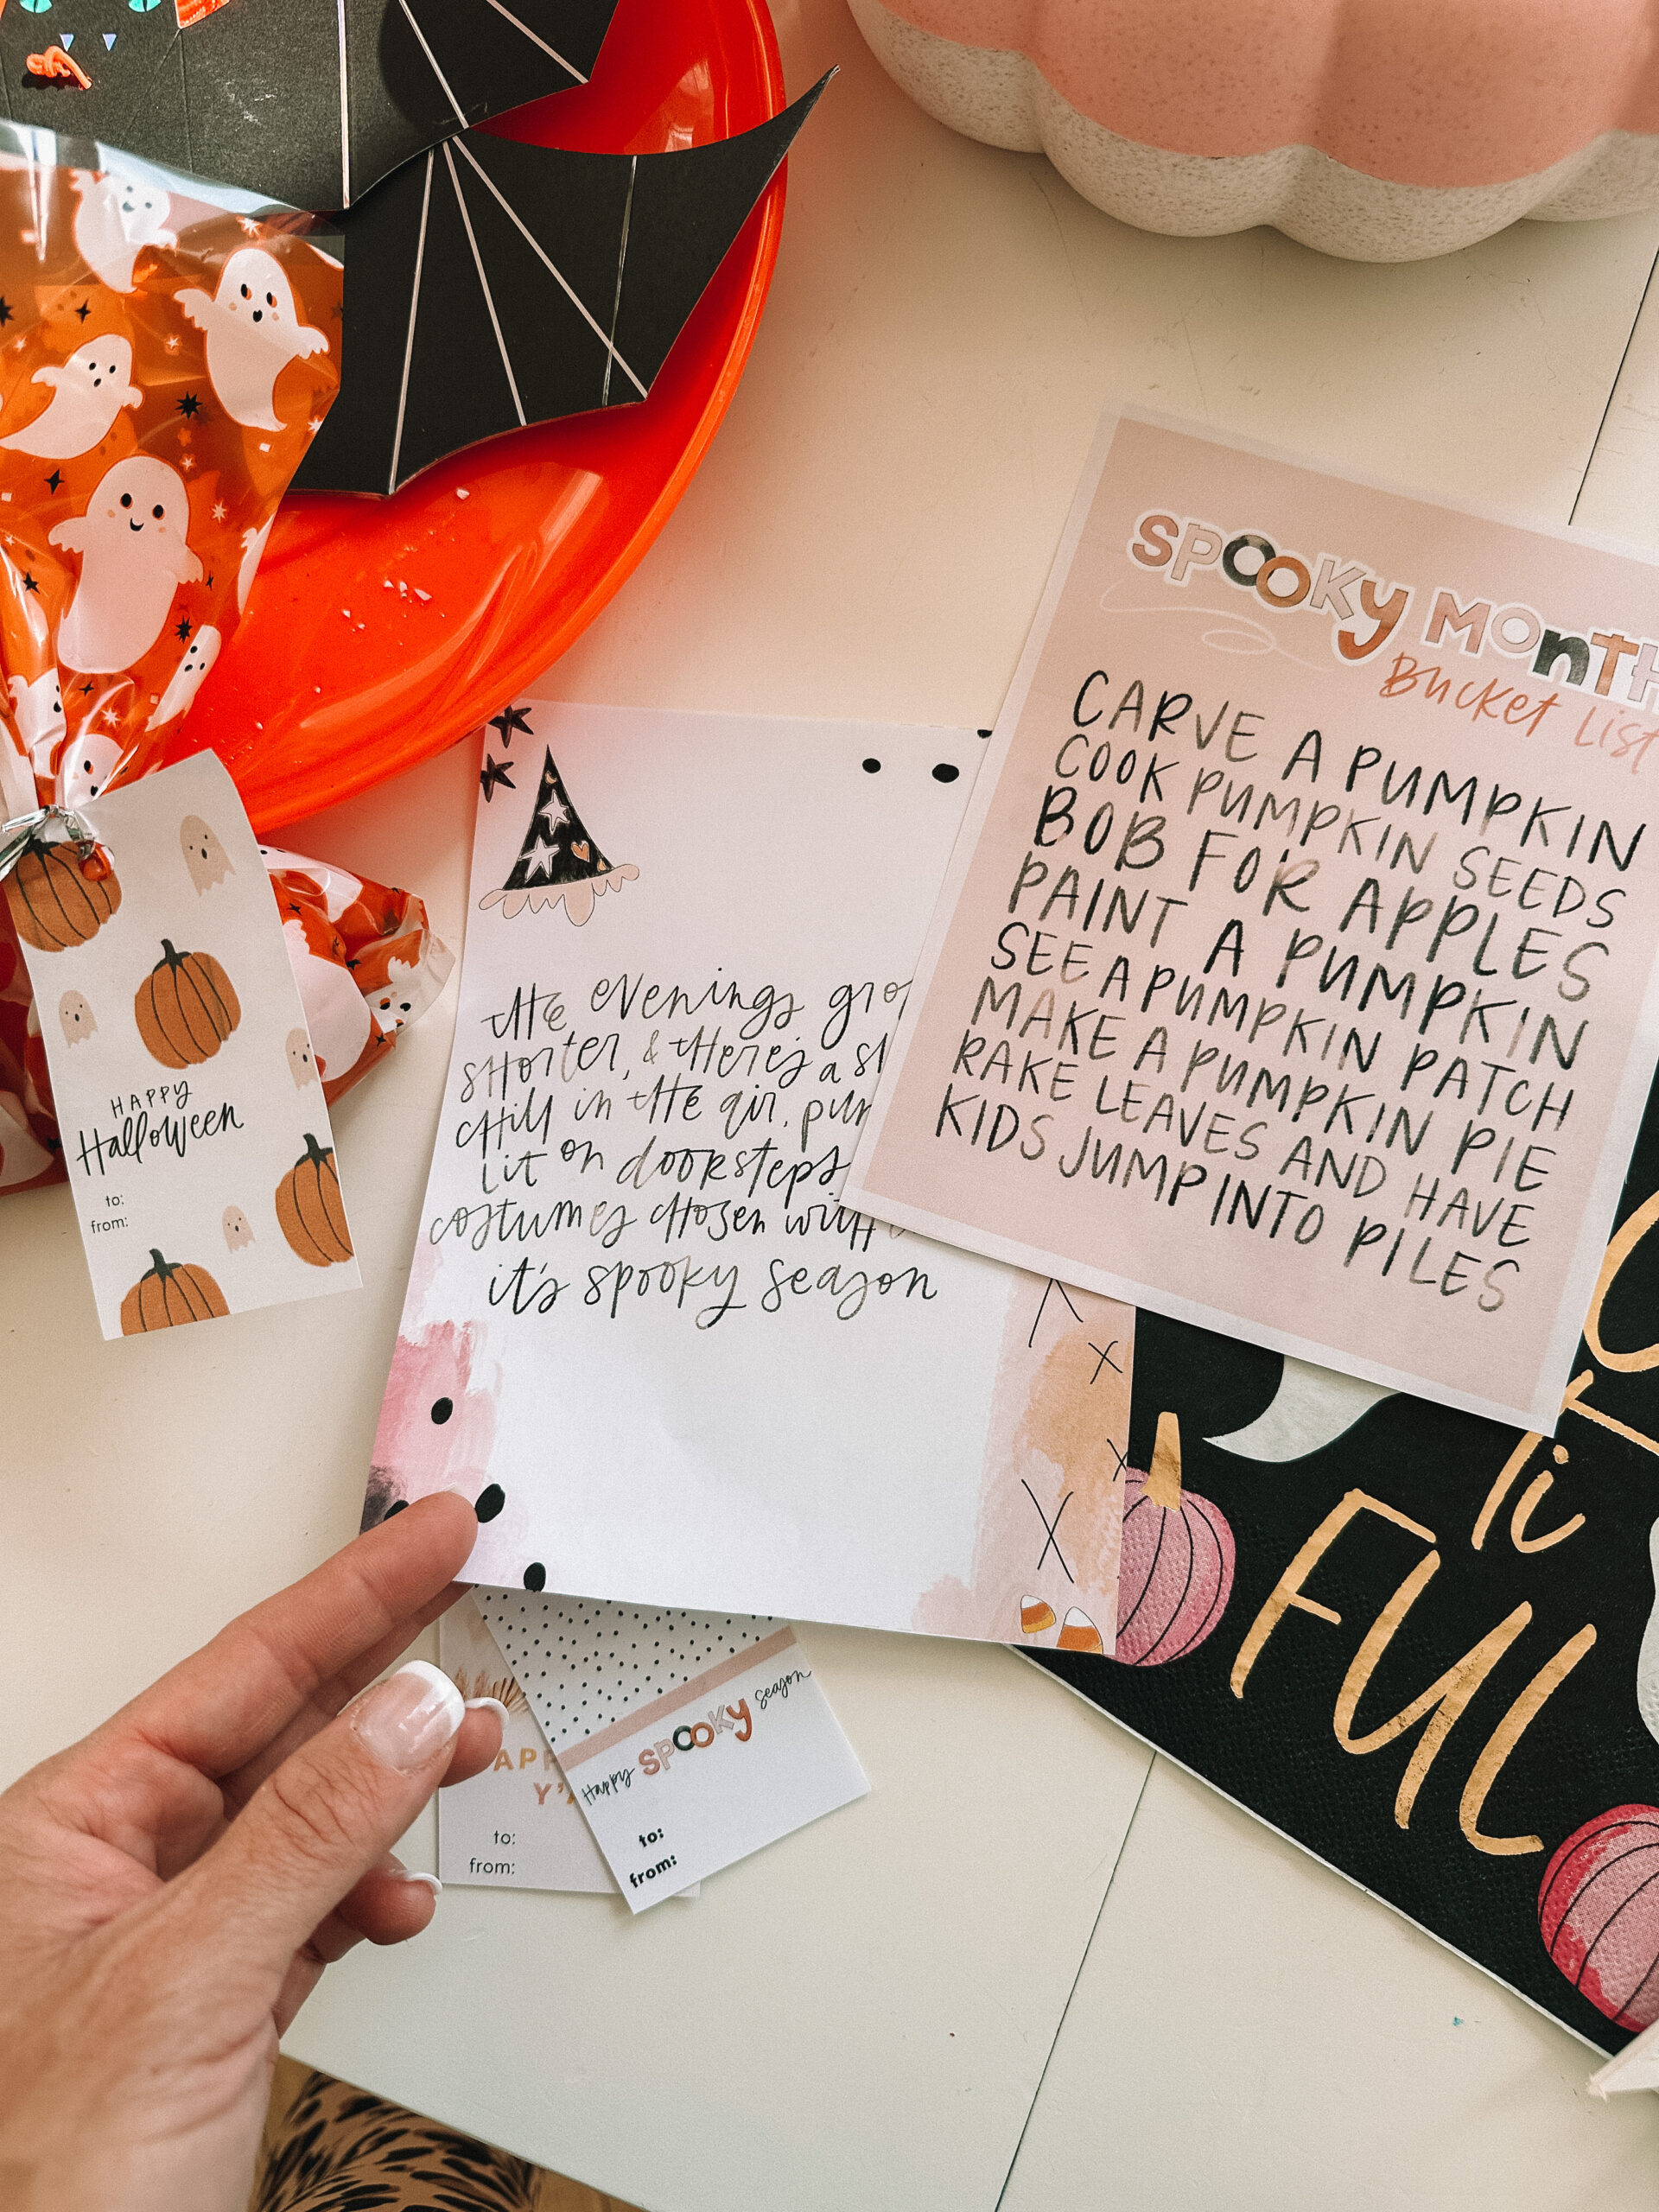 SPOOKY MONTH
Bucket List
CARVE A PUMPKIN
COOK PUMPKIN SEEDS
BOB FOR APPLES
PAINT A PUMPKIN
SEE A PUMPKIN PATCH
MAKE A PUMPKIN PIE
RAKE LEAVES AND HAVE
KIDS JUMP INTO PILES
the evenings
shorter, & there's a
chill in the air,
lit on doorsteps
costumes chosen with
it's spooky season
HAPPY
Halloween
to:
from:
Happy SPOOKY season
to:
from:
to:
from:
FUL